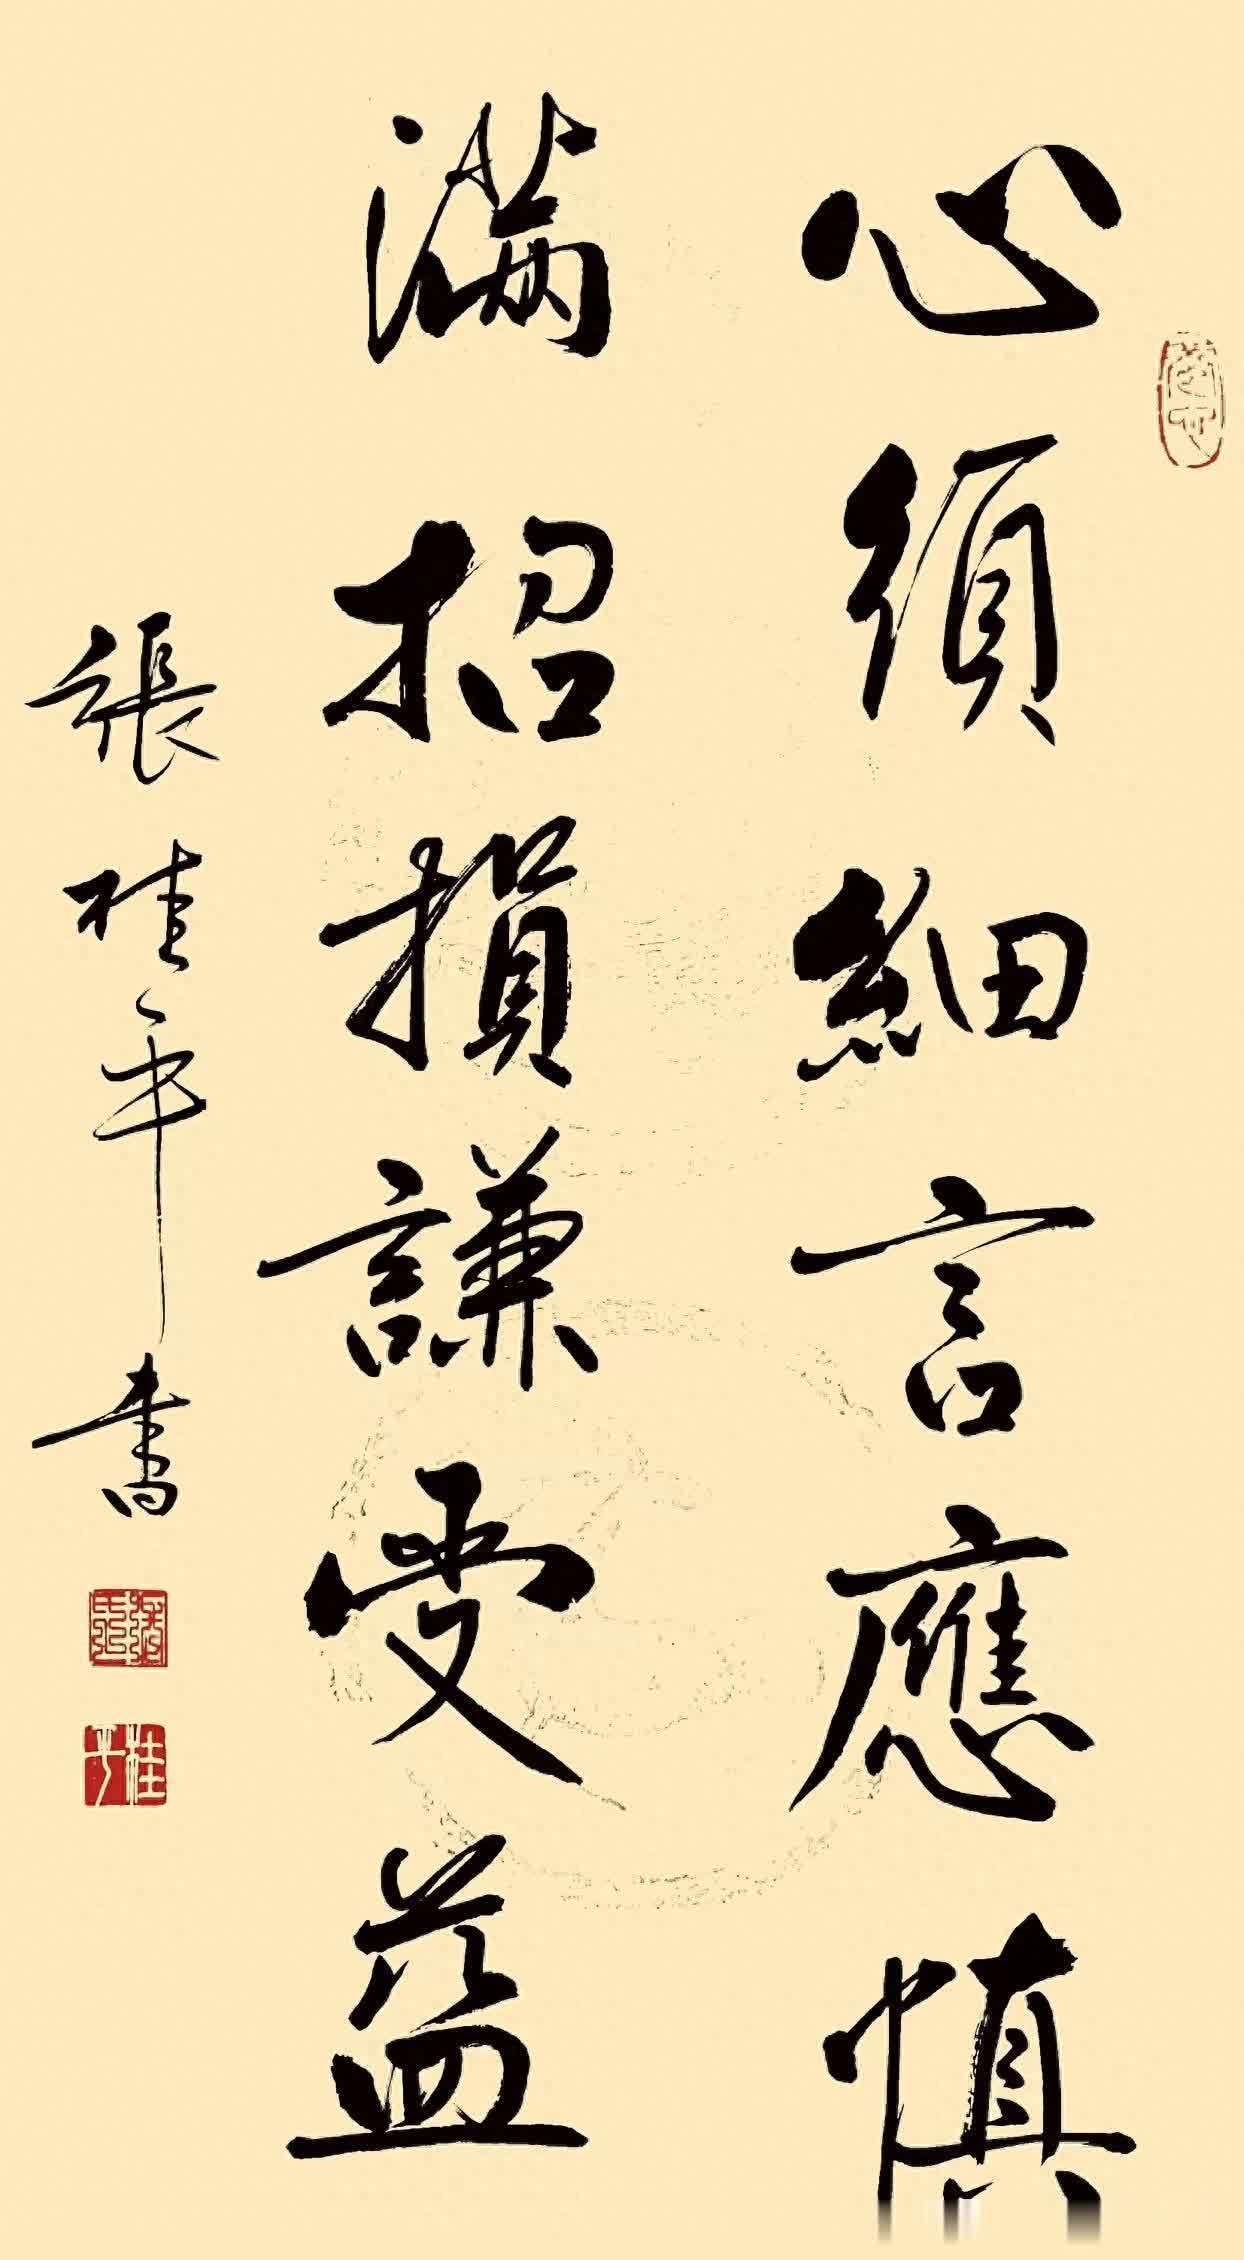 心須細言應慎
滿招損謙受益
張桂平書